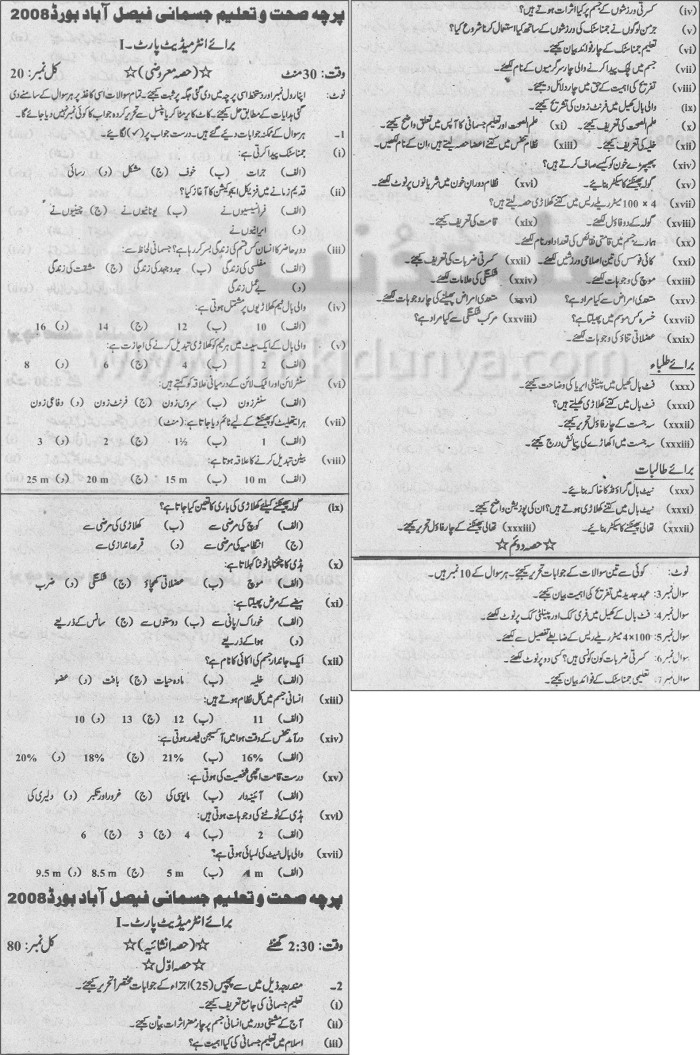 پرچہ صحت و تعلیم جسمانی فیصل آباد بورڈ 2008
برائے انٹرمیڈیٹ پارٹ۔I
وقت: 30 منٹ ☆(حصہ معروضی)☆ کل نمبر: 20
نوٹ: اپنا رول نمبر اور دستخط اسی پرچہ میں دی گئی جگہ پر ثبت کیجئے۔ تمام سوالات اسی کاغذ پر ہر سوال کے سامنے دی
گئی ہدایات کے مطابق حل کیجئے۔ کاٹ کر یا مٹا کر یا پنسل سے تحریر کردہ جواب کا کوئی نمبر نہیں دیا جائے گا۔
1۔ ہر سوال کے ممکنہ جوابات دیئے گئے ہیں۔ درست جواب پر (✓) لگائیے۔
(i) جمناسٹک پیدا کرتی ہے:
(الف) جرات (ب) خوف (ج) مشکل (د) رسائی
(ii) قدیم زمانے میں فزیکل ایجوکیشن کا آغاز کیا؟
(الف) فرانسیسیوں نے (ب) یونانیوں نے (ج) چینیوں نے
(د) ایرانیوں نے
(iii) دور حاضر کا انسان کس قسم کی زندگی بسر کر رہا ہے؟ جسمانی لحاظ سے:
(الف) مفلسی کی زندگی (ب) جدوجہد کی زندگی (ج) مشقت کی زندگی
(د) بے عمل زندگی
(iv) والی بال ٹیم کھلاڑیوں پر مشتمل ہوتی ہے:
(الف) 10 (ب) 12 (ج) 14 (د) 16
(v) والی بال کے ایک سیٹ میں ہر ٹیم کو کھلاڑی تبدیل کرنے کی اجازت ہے:
(الف) 2 (ب) 4 (ج) 6 (د) 8
(vi) سنٹر لائن اور اٹیک لائن کے درمیانی علاقہ کو کہتے ہیں:
(الف) سنٹر زون (ب) سروس زون (ج) فرنٹ زون (د) دفاعی زون
(vii) ہر ایتھلیٹ کو پھینکنے کے لیے ٹائم دیا جاتا ہے: (منٹ)
(الف) 1 (ب) 1½ (ج) 2 (د) 3
(viii) بیٹن تبدیل کرنے کا علاقہ ہوتا ہے:
(الف) 10 m (ب) 15 m (ج) 20 m (د) 25 m
(ix) گولہ پھینکنے کیلئے کھلاڑی کی باری کا تعین کیا جاتا ہے؟
(الف) کوچ کی مرضی سے (ب) کھلاڑی کی مرضی سے
(ج) انتظامیہ کی مرضی سے (د) قرعہ اندازی سے
(x) ہڈی کا چٹخنا یا ٹوٹنا کہلاتا ہے:
(الف) موچ (ب) عضلاتی کھچاؤ (ج) شکستگی (د) ضرب
(xi) ہیضے کے مرض پھیلتا ہے:
(الف) خوراک/پانی سے (ب) دوستوں سے (ج) سانس کے ذریعے
(د) ہوا کے ذریعے
(xii) ایک جاندار جسم کی اکائی کا نام ہے؟
(الف) خلیہ (ب) مادہ حیات (ج) بافت (د) عضو
(xiii) انسانی جسم میں کل نظام ہوتے ہیں:
(الف) 11 (ب) 12 (ج) 13 (د) 10
(xiv) درآمد تنفس کے وقت ہوا میں آکسیجن فیصد ہوتی ہے:
(الف) 16% (ب) 21% (ج) 18% (د) 20%
(xv) درست قامت اچھی شخصیت کی ہوتی ہے:
(الف) آئینہ دار (ب) مایوسی کی (ج) غرور اور تکبر (د) دلیری کی
(xvi) ہڈی کے ٹوٹنے کی وجوہات ہوتی ہیں:
(الف) 2 (ب) 4 (ج) 3 (ج) 6
(xvii) والی بال نیٹ کی لمبائی ہوتی ہے:
(الف) 4 m (ب) 5 m (ج) 8.5 m (د) 9.5 m
پرچہ صحت و تعلیم جسمانی فیصل آباد بورڈ 2008
برائے انٹرمیڈیٹ پارٹ۔I
وقت: 2:30 گھنٹے ☆(حصہ انشائیہ)☆ کل نمبر: 80
☆ حصہ اوّل ☆
2۔ مندرجہ ذیل میں سے پچیس (25) اجزاء کے جوابات مختصراً تحریر کیجئے۔
(i) تعلیم جسمانی کی جامع تعریف کیجئے۔
(ii) آج کے مشینی دور میں انسانی جسم پر چار مضر اثرات بیان کیجئے۔
(iii) اسلام میں تعلیم جسمانی کی کیا اہمیت ہے؟
(iv) کسرتی ورزشوں کے جسم پر کیا اثرات ہوتے ہیں؟
(v) جرمن لوگوں نے جمناسٹک کی ورزشوں کے ساتھ کیا استعمال کرنا شروع کیا؟
(vi) تعلیمی جمناسٹک کے چار فوائد بیان کیجئے۔
(vii) جسم میں لچک پیدا کرنے والی چار سرگرمیوں کے نام لکھئے۔
(viii) تفریح کی اہمیت کے حق میں چار دلائل دیجئے۔
(ix) والی بال کھیل میں فرنٹ زون کی تشریح کیجئے۔
(x) علم الصحت کی تعریف کیجئے۔ (xi) علم الصحت اور تعلیم جسمانی کا آپس میں تعلق واضح کیجئے۔
(xii) خلیہ کی تعریف کیجئے۔ (xiii) نظام تنفس میں کتنے اعضا حصہ لیتے ہیں، ان کے نام لکھیں۔
(xiv) پھیپھڑے خون کو کیسے صاف کرتے ہیں؟
(xv) گولہ پھینکنے کا سیکٹر بنائیے۔ (xvi) نظام دوران خون میں شریانوں پر نوٹ لکھئے۔
(xvii) 4 × 100 میٹر ریلے ریس میں کتنے کھلاڑی حصہ لیتے ہیں؟
(xviii) گولہ کے دو فاؤل لکھئے۔ (xix) قامت کی تعریف کیجئے۔
(xx) ہمارے جسم میں قامتی نقائص کی تعداد اور نام لکھئے۔
(xxi) کائی فوسس کی تین اصلاحی ورزشیں لکھئے۔ (xxii) کسرتی ضربات کی تعریف کیجئے۔
(xxiii) موچ کی وجوہات لکھئے۔ (xxiv) شکستگی کی علامات لکھئے۔
(xxv) متعدی امراض سے کیا مراد ہے؟ (xxvi) متعدی امراض پھیلنے کی چار وجوہات لکھئے۔
(xxvii) خسرہ کس موسم میں پھیلتا ہے؟ (xxviii) مرکب شکستگی سے کیا مراد ہے؟
(xxix) عضلاتی تناؤ کی وجوہات لکھئے۔
برائے طلباء
(xxx) فٹ بال کھیل میں پینلٹی ایریا کی وضاحت کیجئے۔
(xxxi) فٹ بال میں کتنے کھلاڑی کھیلتے ہیں؟
(xxxii) سہ جست کے چار فاؤل تحریر کیجئے۔
(xxxiii) سہ جست میں اکھاڑے کی پیمائش درج کیجئے۔
برائے طالبات
(xxx) نیٹ بال گراؤنڈ کا خاکہ بنائیے۔
(xxxi) نیٹ بال میں کتنے کھلاڑی ہوتے ہیں؟ ان کی پوزیشن واضح کیجئے۔
(xxxii) تھالی پھینکنے کا سیکٹر بنائیے۔ (xxxiii) تھالی پھینکنے کے چار فاؤل تحریر کیجئے۔
☆ حصہ دوئم ☆
نوٹ: کوئی سے تین سوالات کے جوابات تحریر کیجئے۔ ہر سوال کے 10 نمبر ہیں۔
سوال نمبر 3: عہد جدید میں تفریح کی اہمیت بیان کیجئے۔
سوال نمبر 4: فٹ بال کے کھیل میں فری کک اور پینلٹی کک پر نوٹ لکھئے۔
سوال نمبر 5: 4×100 میٹر ریلے ریس کے ضابطے تفصیل سے لکھئے۔
سوال نمبر 6: کسرتی ضربات کون کونسی ہیں؟ کسی دو پر نوٹ لکھئے۔
سوال نمبر 7: تعلیمی جمناسٹک کے فوائد بیان کیجئے۔